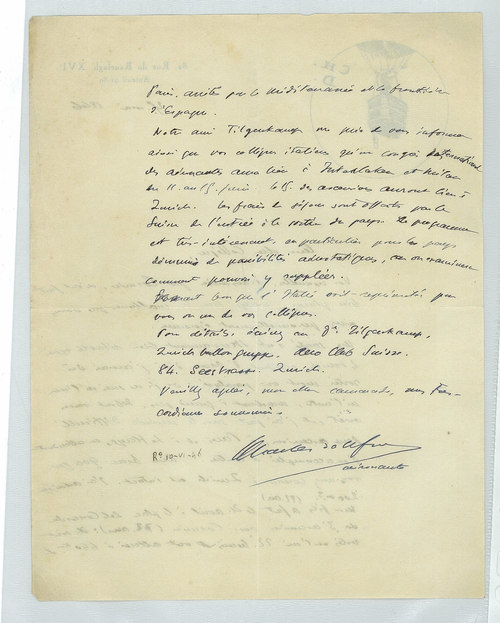 Paris, arrêtés par la Méditerranée et la frontière
d'Espagne.
Notre ami Tilgenkamp me prie de vous informer
ainsi que vos collègues italiens qu'un congrès international
des aéronautes aura lieu à Interlaken et Milan
du 11 au 15 juin. Le 15 des ascensions auront lieu à
Zurich. Les frais de séjour sont offerts par la
Suisse de l'entrée à la sortie du pays. Le programme
est très intéressant, en particulier pour les pays
démunis de possibilités aérostatiques, car on examinera
comment pouvoir y suppléer.
bon que l'Italie soit représentée par
vous ou un de vos collègues.
Pour détails, écrivez au Dr. Tilgenkamp,
Zurich ballon gruppe, Aero Club Suisse.
84. Seestrasse. Zurich.
Veuillez agréer, mon cher camarade, mes très
cordiaux souvenirs.
Charles Dollfus
aéronaute
Re 10-VI-46